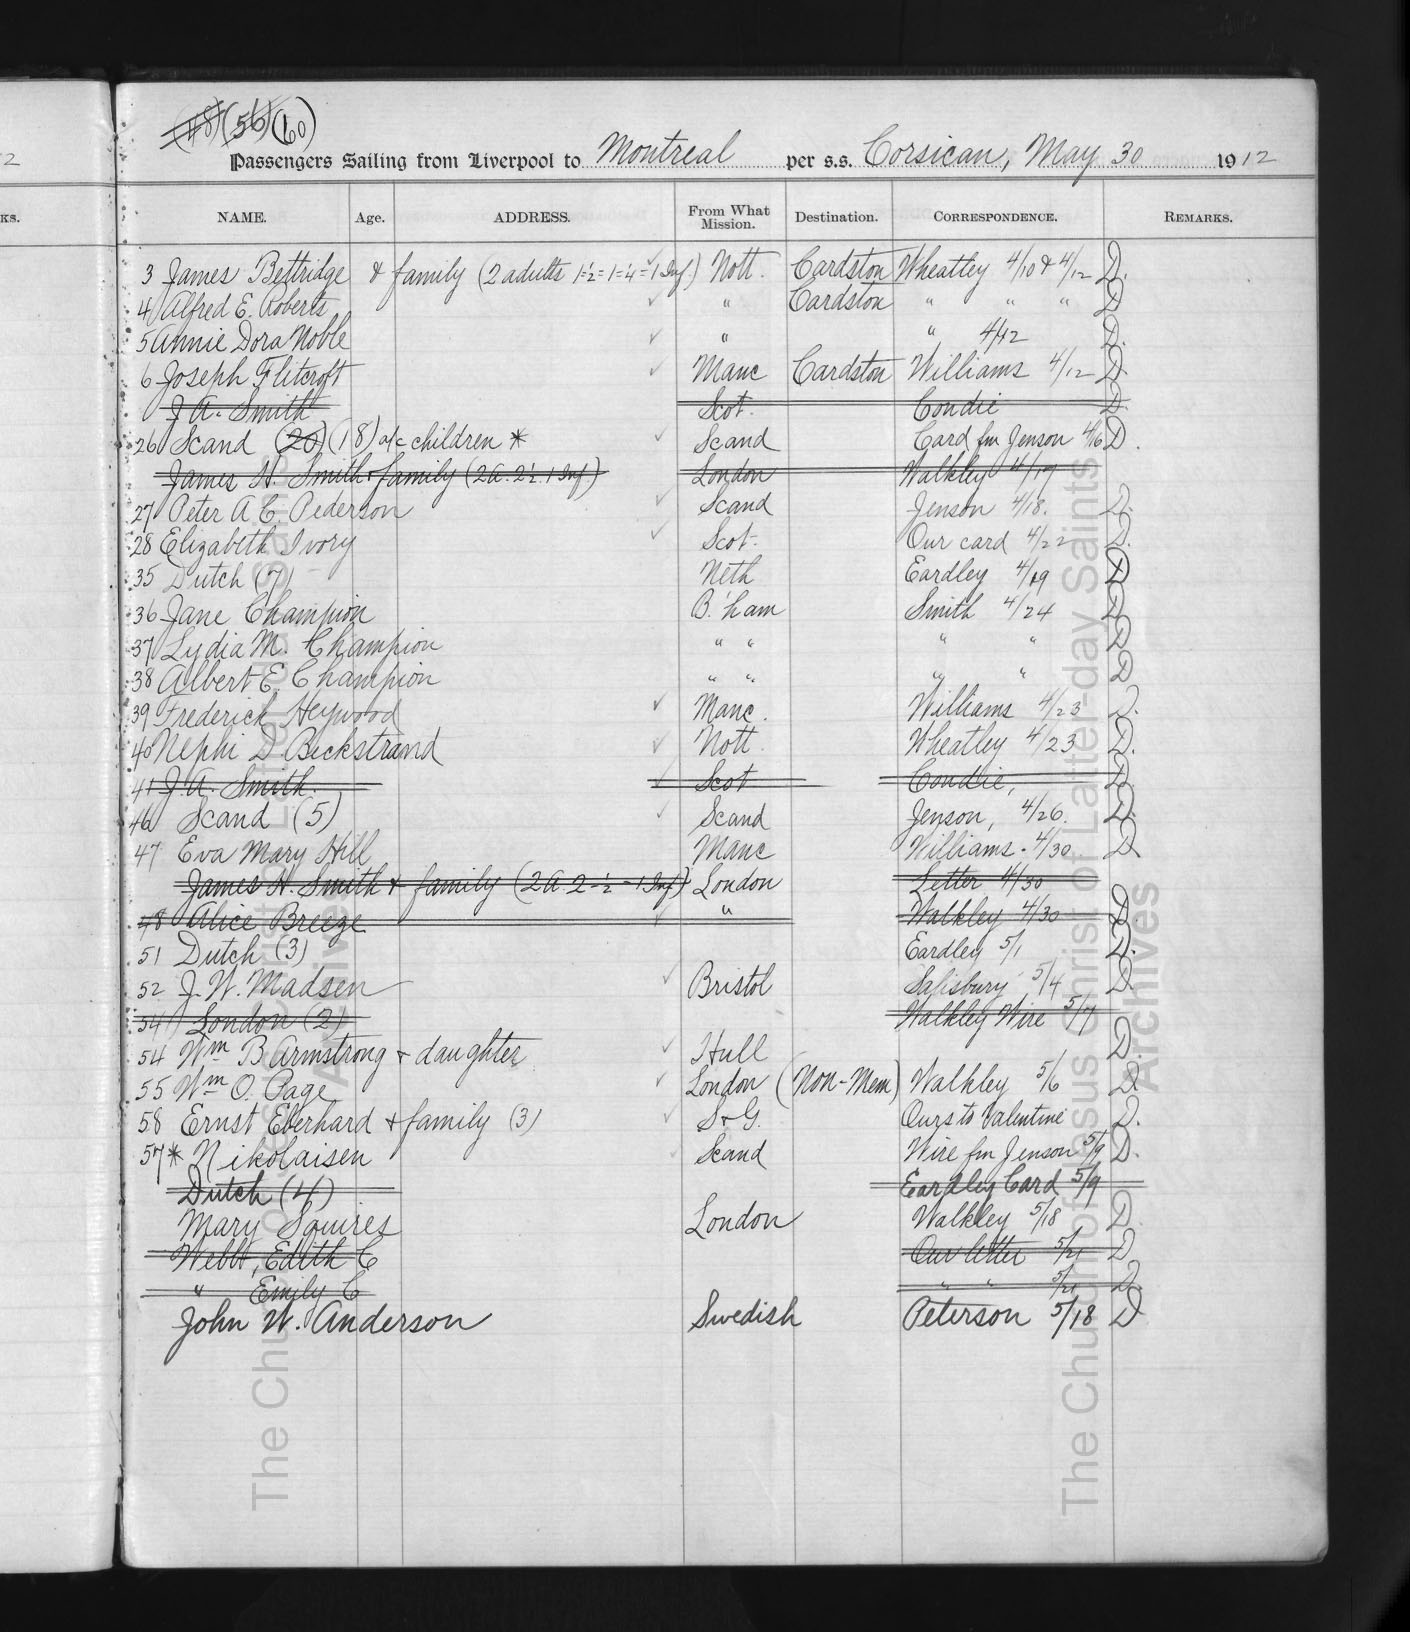 (48) (56) (60)
2
Passengers Sailing from Liverpool to Montreal per s.s. Corsican, May 30 1912
KS.
NAME. Age. ADDRESS. From What Mission. Destination. CORRESPONDENCE. REMARKS.
3 James Bettridge & family (2 adults 1-½ = 1-¼ = 1 Inf.) Nott. Cardston Wheatley 4/10 & 4/12 D.
4 Alfred E. Roberts " Cardston " " " D
5 Annie Dora Noble " " 4/12 D.
6 Joseph Flitcroft Manc Cardston Williams 4/12 D.
J. A. Smith Scot. Condie D.
26 Scand (20) (18) a/c children * Scand Card fm Jenson 4/16 D.
James H. Smith & family (2A. 2½. 1 Inf.) London Walkley 4/17
27 Peter A. C. Pederson Scand Jenson 4/18. D.
28 Elizabeth Ivory Scot. Our card 4/22 D.
35 Dutch (7) Neth Eardley 4/19 D
36 Jane Champion B'ham Smith 4/24 D
37 Lydia M. Champion " " " " D
38 Albert E. Champion " " " " D
39 Frederick Heywood Manc. Williams 4/23 D.
40 Nephi D Bickstrand Nott. Wheatley 4/23 D.
41 J. A. Smith. Scot Condie, D.
46 Scand (5) Scand Jenson, 4/26. D.
47 Eva Mary Hill Manc Williams. 4/30. D
James H. Smith & family (2A. 2-½ - 1 Inf) London Letter 4/30
48 Alice Breeze " Walkley 4/30 D.
51 Dutch (3) Eardley 5/1 D.
52 J. W. Madsen Bristol Salisbury 5/4 D.
54 London (2) Walkley Wire 5/7
54 Wm B Armstrong & daughter Hull D.
55 Wm O. Page London (Non-Mem) Walkley 5/6 D.
58 Ernst Eberhard & family (3) S&G. Ours to Valentine D.
57 * Nikolaisen Scand Wire fm Jenson 5/9 D.
Dutch (4) Eardley Card 5/9
Mary Squires London Walkley 5/18 D
Webb, Edith C Our letter 5/21 D
" Emily C " " 5/21 D.
John W. Anderson Swedish Peterson 5/18 D
The Church of Jesus Christ of Latter-day Saints
Archives
The Church of Jesus Christ of Latter-day Saints
Archives